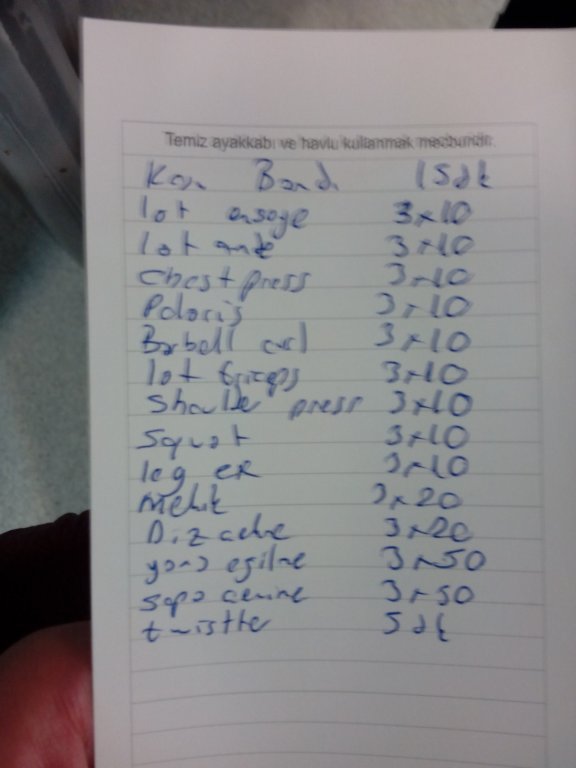 Temiz ayakkabı ve havlu kullanmak mecburidir.
Koşu Bandı 15dk
lat ense 3x10
lat önde 3x10
chest press 3x10
Polaris 3x10
Barbell curl 3x10
lat triceps 3x10
Shoulde press 3x10
Squat 3x10
leg ex 3x10
Mekik 3x20
Diz çekme 3x20
yana eğilme 3x50
sopa çevirme 3x50
twistte 5dk